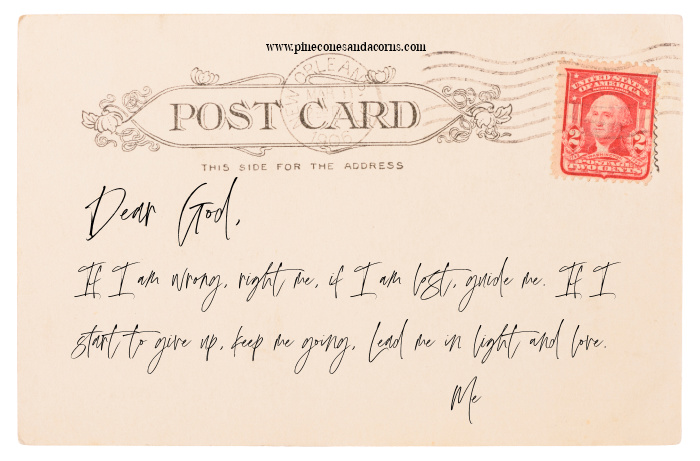 www.pineconesandacorns.com
NEW ORLEANS
POST CARD
1906
THIS SIDE FOR THE ADDRESS
UNITED STATES
OF AMERICA
2 2
POSTAGE
TWO CENTS
Dear God,
If I am wrong, right me, if I am lost, guide me. If I
start to give up, keep me going, Lead me in light and love.
Me